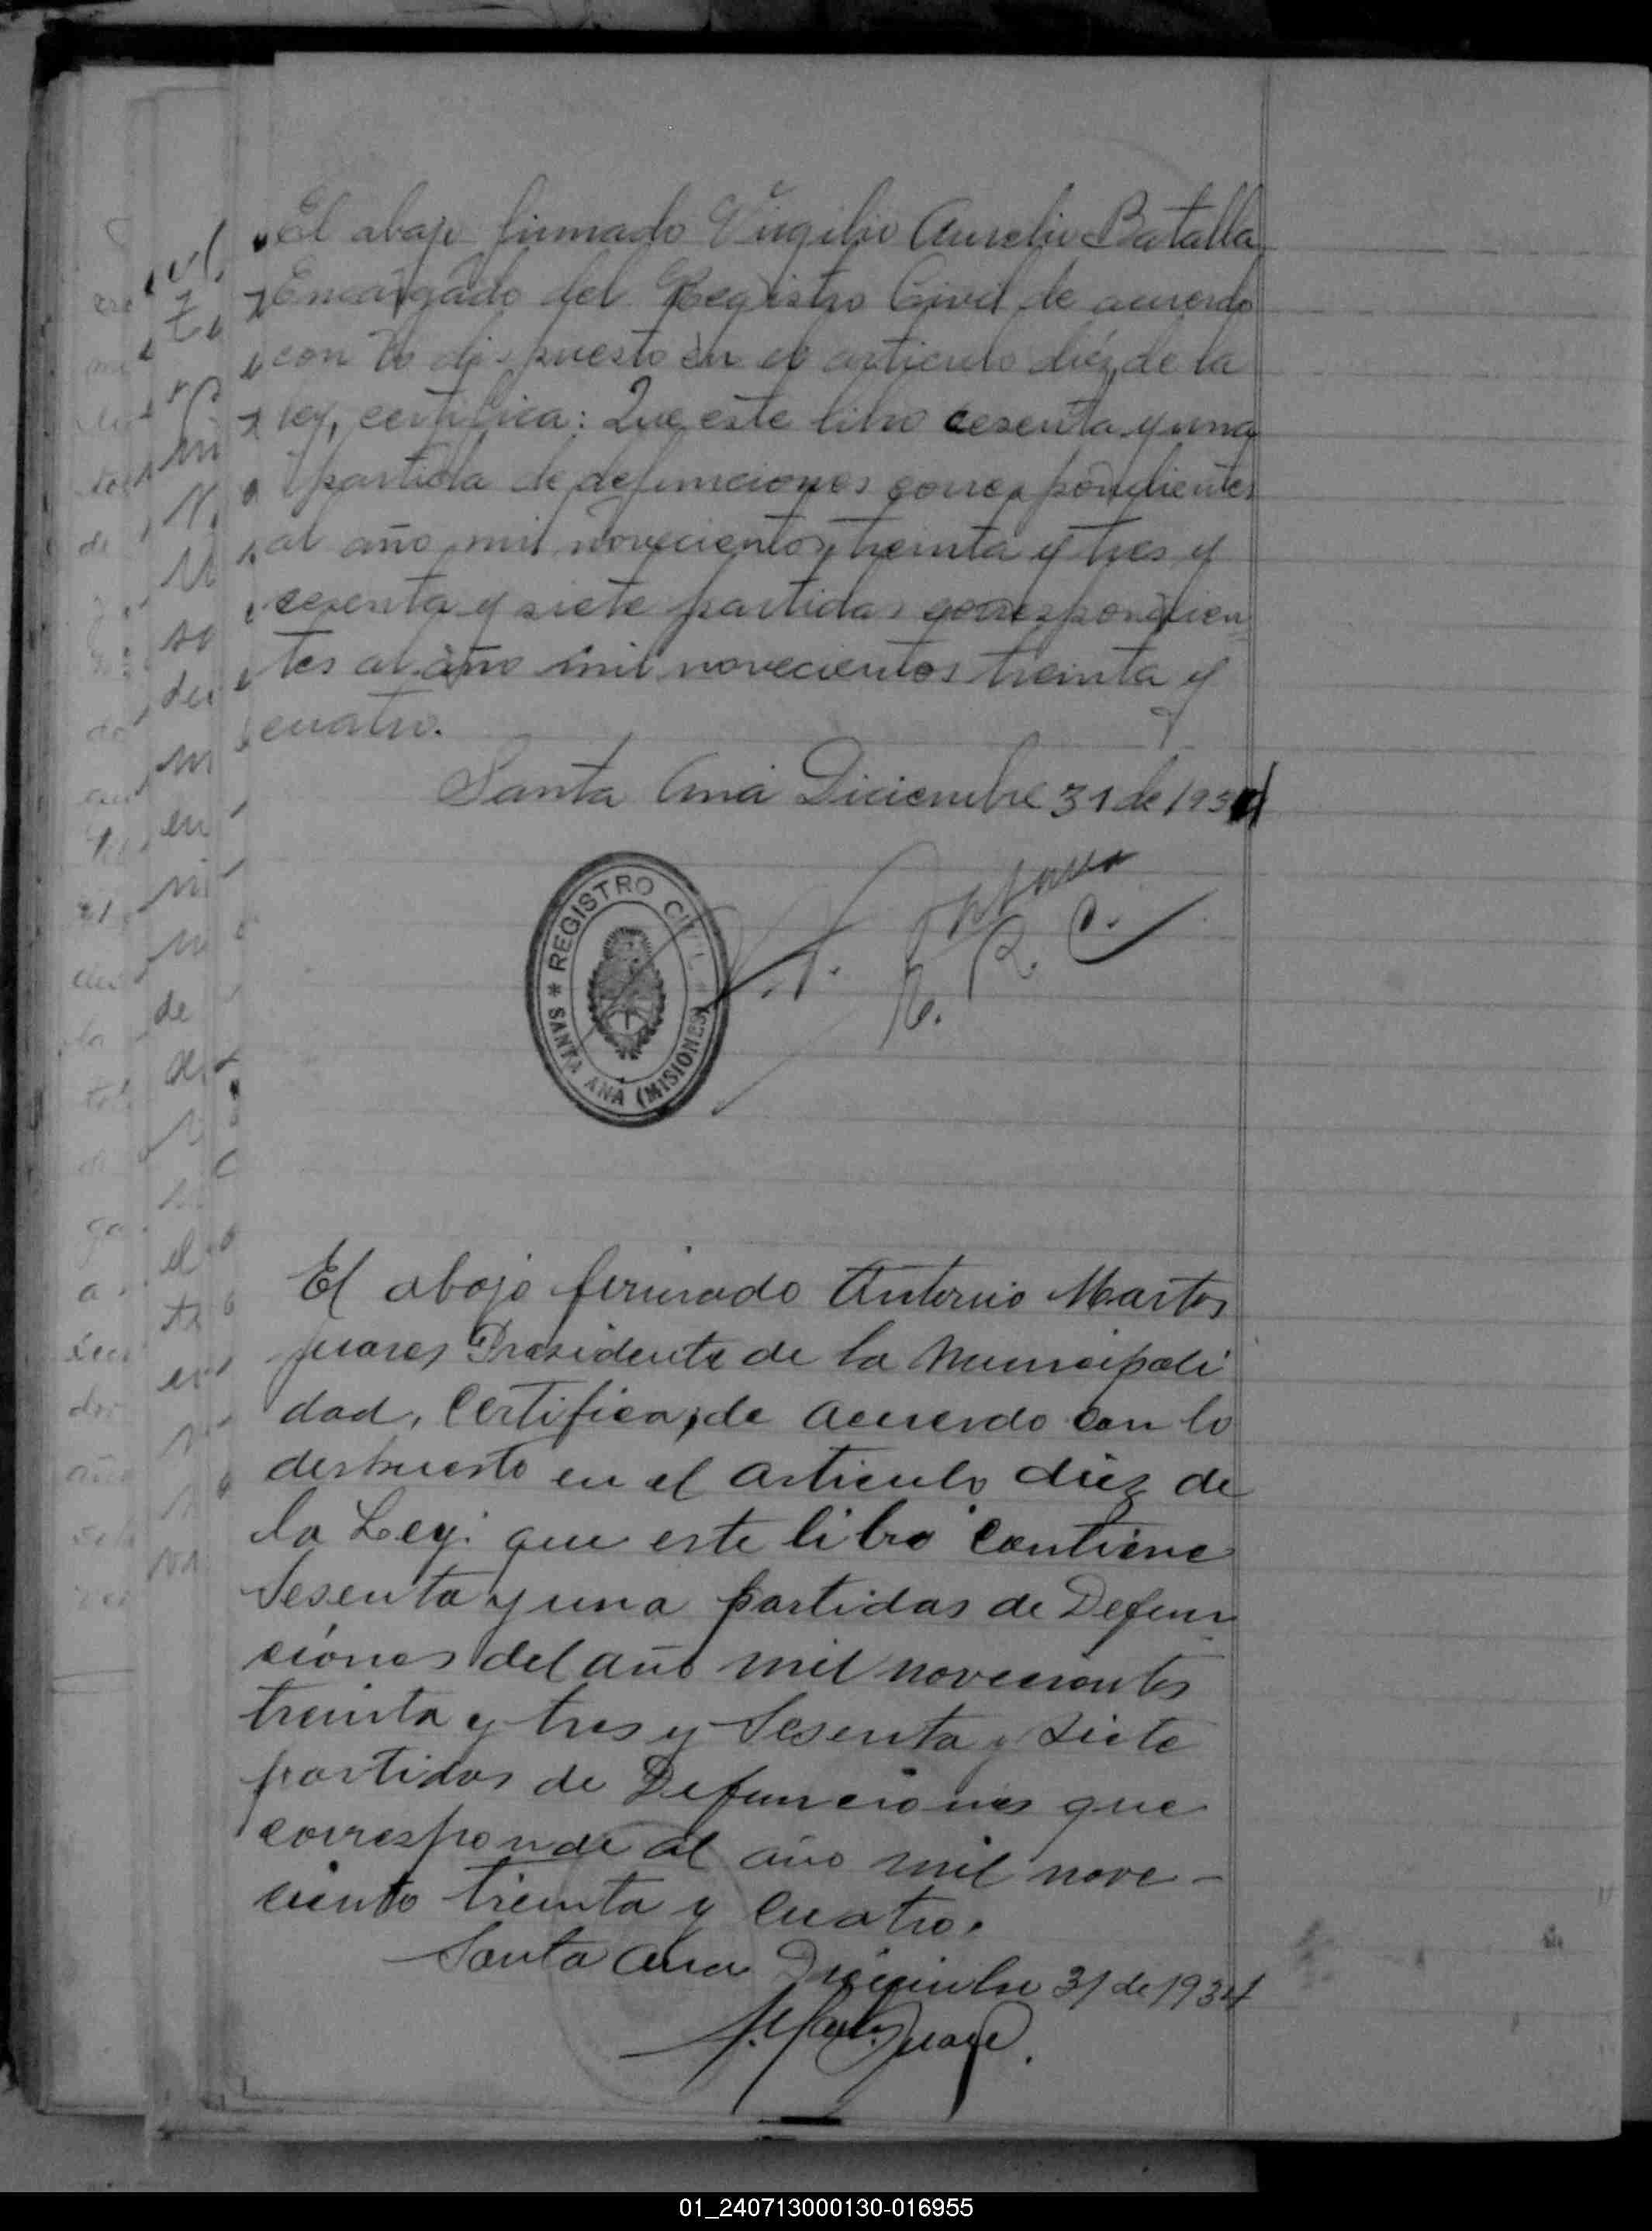 El abajo firmado Virgilio Aurelio Batalla
Encargado del Registro Civil de acuerdo
con lo dispuesto en el articulo diez de la
ley, certifica: Que este libro cesenta y una
partida de defunciones correspondientes
al año mil novecientos treinta y tres y
cesenta y siete partidas correspondien
tes al año mil novecientos treinta y
cuatro.
Santa Ana Diciembre 31 de 1934
REGISTRO CIVIL
* SANTA ANA (MISIONES) *
El abajo firmado Antonio Martos
Juares Presidente de la Municipali
dad, Certifica, de acuerdo con lo
despuesto en el articulo diez de
la Ley: que este libro contiene
Sesenta y una partidas de Defun
ciones del año mil novecientos
treinta y tres y Sesenta y siete
partidas de Defunciones que
corresponde al año mil nove-
ciento treinta y cuatro.
Santa Ana Diciembre 31 de 1934
01_240713000130-016955